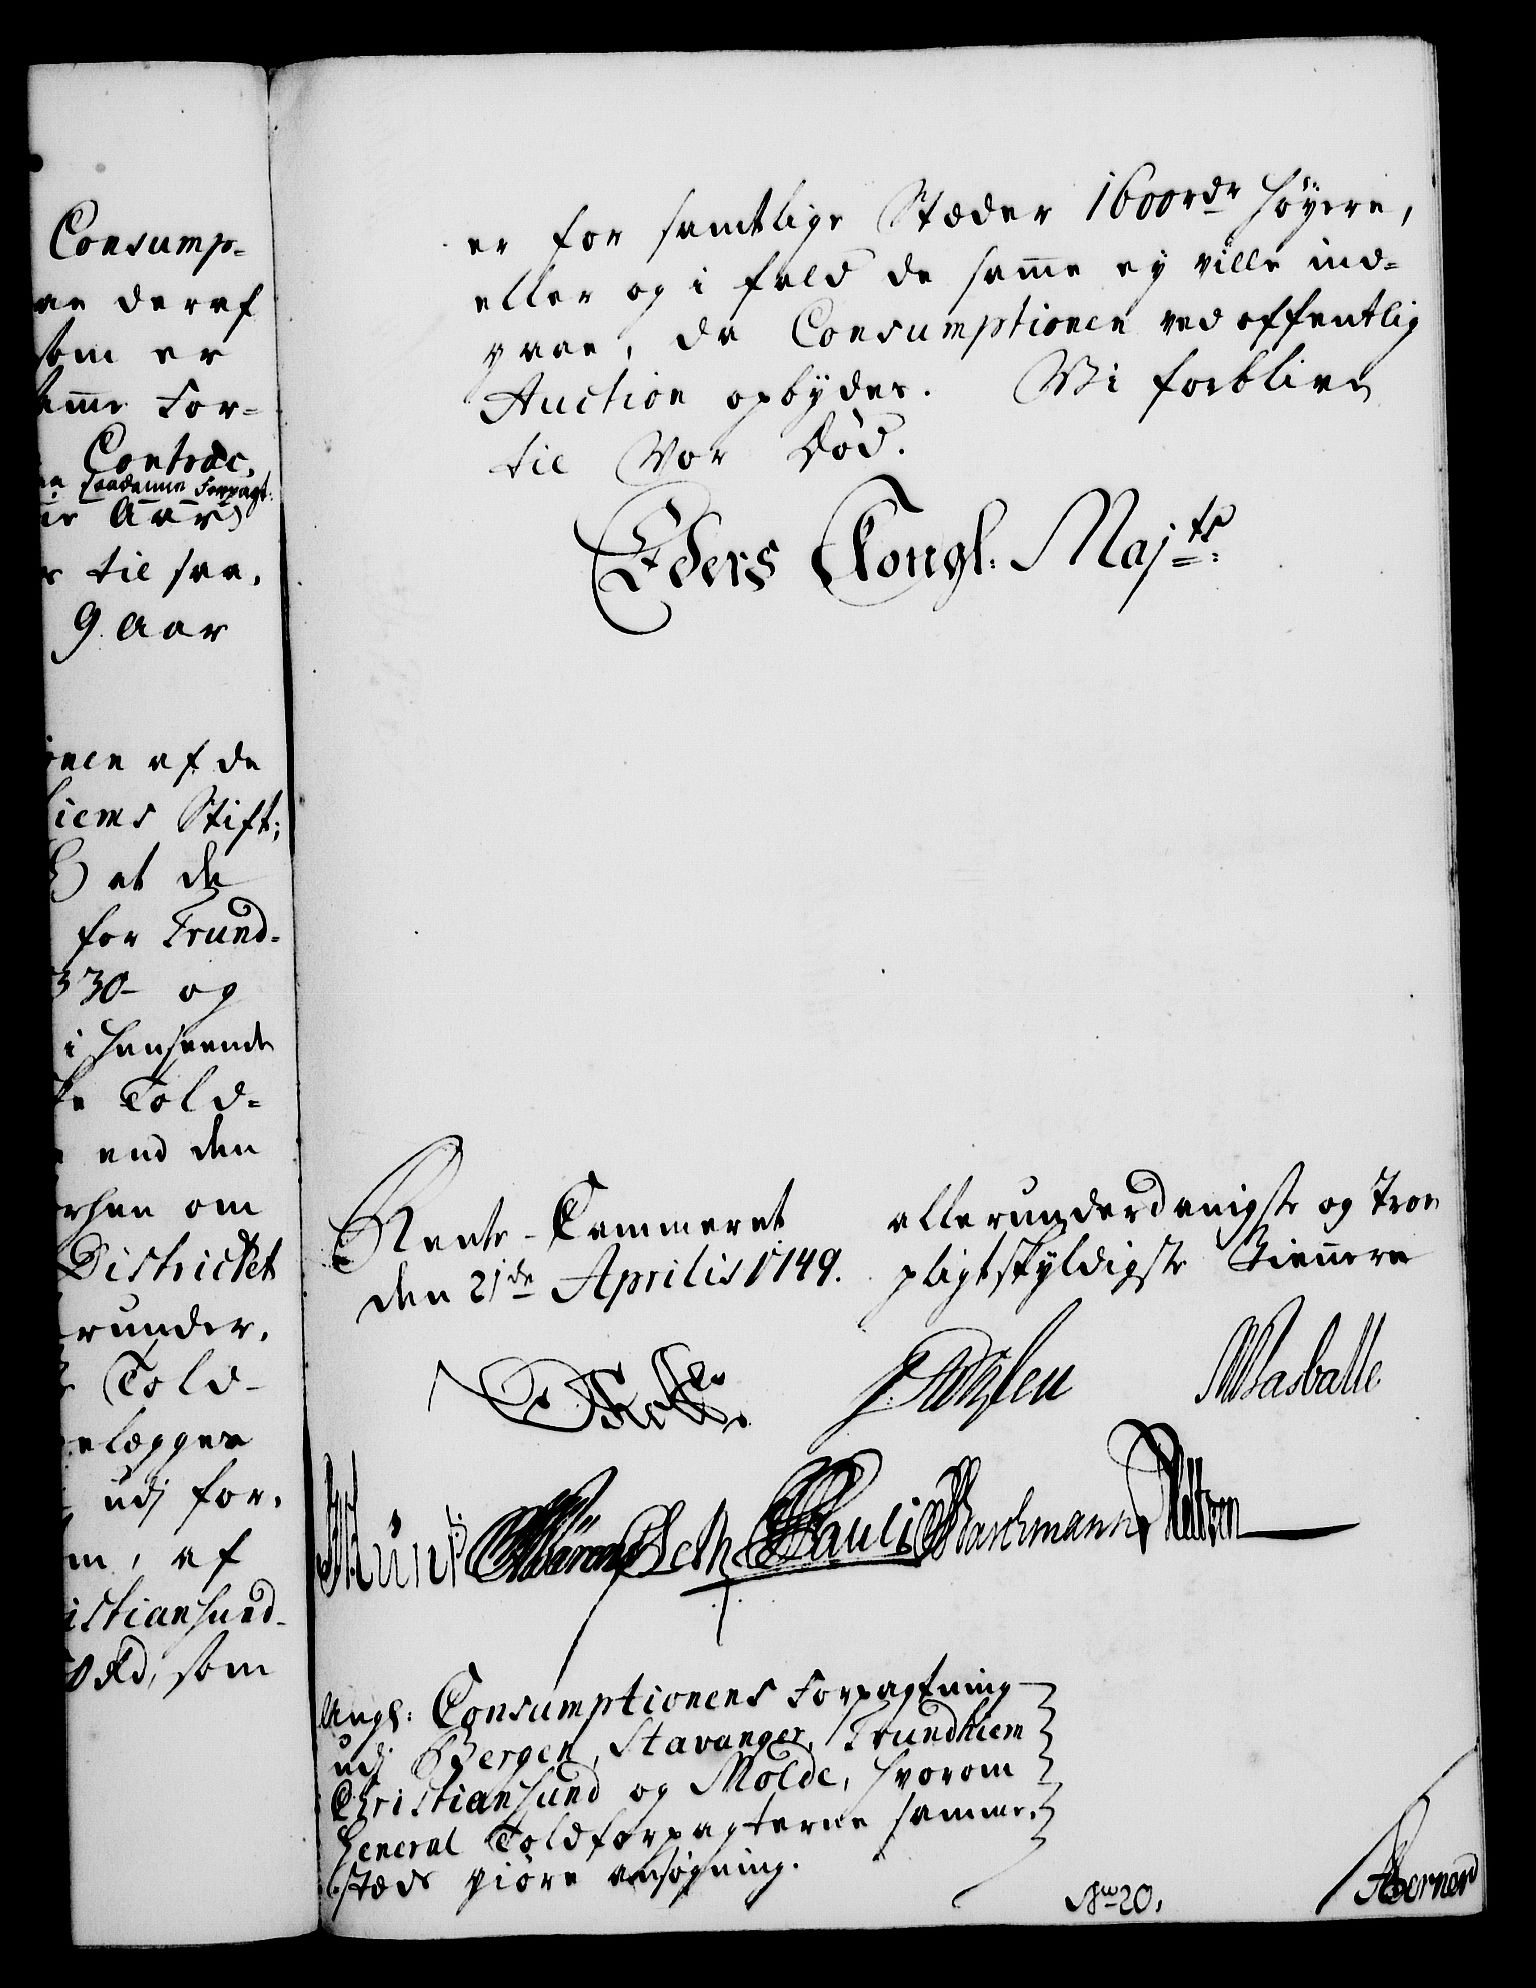 Consump-
deraf
som er
samme For-
Contrac,
saadanne Forpagt:
Aar
til saa,
9 Aar
af de
hiems Stift;
at de
for Trund-
330 og
i henseende
Told-
end den
om
Districtet
runder,
Told-
elægger
udj for,
af
istiansund-
som
er for samtlige Stæder 1600 rdr høyere,
eller og i fald de samme ey ville ind-
gaae, da Consumptionen ved offentlig
Auction opbydes. Wi forblive
til Vor Død.
Eders Kongl. Maj:ts
Rente-Cammeret
den 21de Aprilis 1749.
allerunderdanigste og Troe
pligtskyldigste Tienere
Pauli Barchmann
Ang: Consumptionens Forpagtning
udj Bergen, Stavanger, Trundhiem
Christiansund og Molde, hvorom
General Toldforpagterne samme-
stæds giøre ansøgning.
No 20.